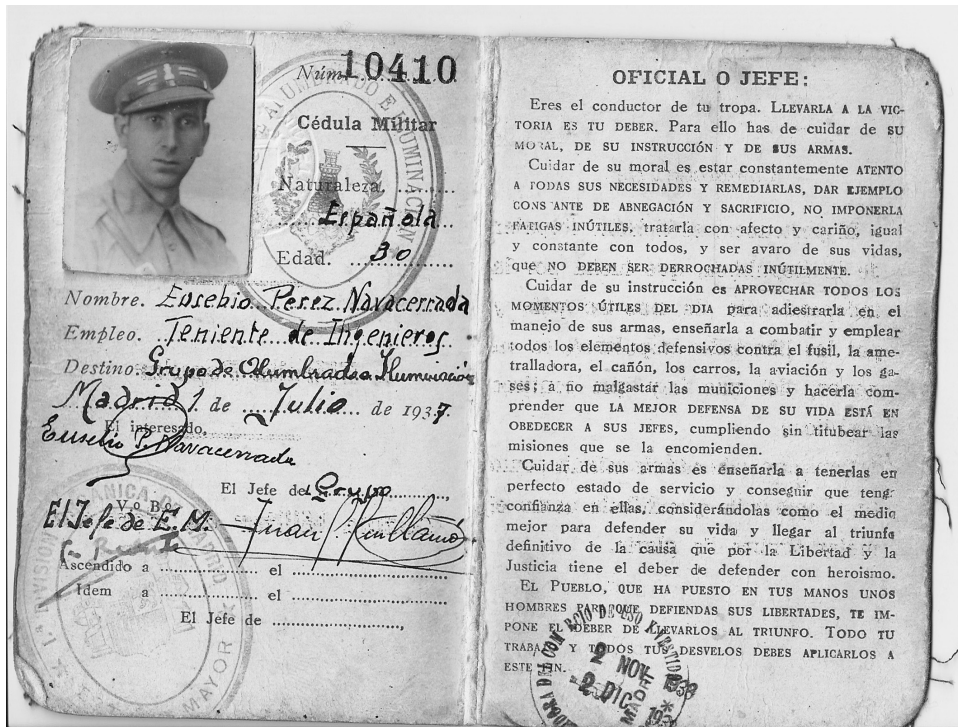 Núm. 10410
ALUMBRADO E ILUMINACIÓN
Cédula Militar
Naturaleza
Española
Edad. 30
Nombre. Eusebio Perez Navacerrada
Empleo. Teniente de Ingenieros
Destino. Grupo de Alumbrado e Iluminación
Madrid 1 de Julio de 1937
El interesado,
Eusebio P. Navacerrada
El Jefe del Grupo,
V.o B.o
El Jefe de E. M.
Juan
Ascendido a el
Idem a el
El Jefe de ,
MAYOR
OFICIAL O JEFE:
Eres el conductor de tu tropa. LLEVARLA A LA VIC-
TORIA ES TU DEBER. Para ello has de cuidar de SU
MORAL, DE SU INSTRUCCIÓN Y DE SUS ARMAS.
Cuidar de su moral es estar constantemente ATENTO
A TODAS SUS NECESIDADES Y REMEDIARLAS, DAR EJEMPLO
CONSTANTE DE ABNEGACIÓN Y SACRIFICIO, NO IMPONERLA
FATIGAS INÚTILES, tratarla con afecto y cariño, igual
y constante con todos, y ser avaro de sus vidas,
que NO DEBEN SER DERROCHADAS INÚTILMENTE.
Cuidar de su instrucción es APROVECHAR TODOS LOS
MOMENTOS ÚTILES DEL DIA para adiestrarla en el
manejo de sus armas, enseñarla a combatir y emplear
todos los elementos defensivos contra el fusil, la ame-
tralladora, el cañón, los carros, la aviación y los ga-
ses; a no malgastar las municiones y hacerla com-
prender que LA MEJOR DEFENSA DE SU VIDA ESTÁ EN
OBEDECER A SUS JEFES, cumpliendo sin titubear las
misiones que se la encomienden.
Cuidar de sus armas es enseñarla a tenerlas en
perfecto estado de servicio y conseguir que tenga
confianza en ellas, considerándolas como el medio
mejor para defender su vida y llegar al triunfo
definitivo de la causa que por la Libertad y la
Justicia tiene el deber de defender con heroismo.
EL PUEBLO, QUE HA PUESTO EN TUS MANOS UNOS
HOMBRES PARA QUE DEFIENDAS SUS LIBERTADES, TE IM-
PONE EL DEBER DE LLEVARLOS AL TRIUNFO. TODO TU
TRABAJO Y TODOS TUS DESVELOS DEBES APLICARLOS A
ESTE FIN.
2 NOV. 1938
2 DIC.
MADRID